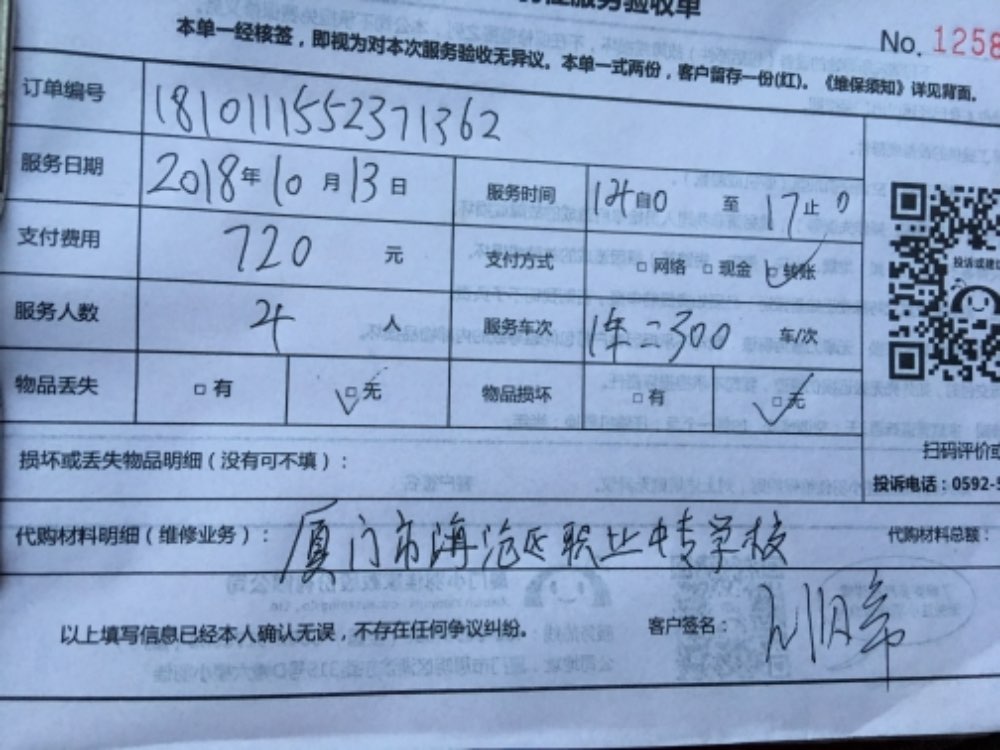 服务验收单
No. 1258
本单一经核签，即视为对本次服务验收无异议。本单一式两份，客户留存一份(红)。《维保须知》详见背面。
订单编号 1810111552371362
服务日期 2018年10月13日 服务时间 自0 至 17止0
支付费用 720 元 支付方式 □网络 □现金 □转账
服务人数 4 人 服务车次 1车二300 车/次
物品丢失 □有 □无 物品损坏 □有 □无
投诉或建议
扫码评价或
损坏或丢失物品明细（没有可不填）：
投诉电话：0592-5
代购材料明细（维修业务）：厦门市海沧区职业中专学校 代购材料总额：
以上填写信息已经本人确认无误，不存在任何争议纠纷。 客户签名：